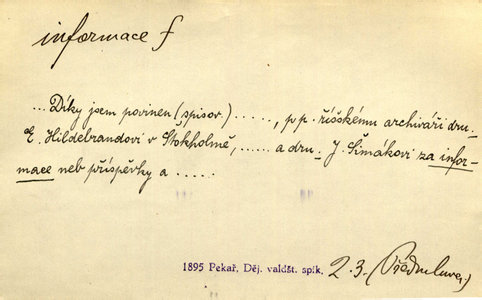 informace f
... Díky jsem povinen (spisov.) ....., pp. říšskému archiváři dru.
E. Hildebrandovi v Štokholmě, ..... a dru. J. Šimákovi za infor-
mace neb příspěvky a .....
1895 Pekař, Děj. valdšt. spik. 2. 3. (Předmluva)